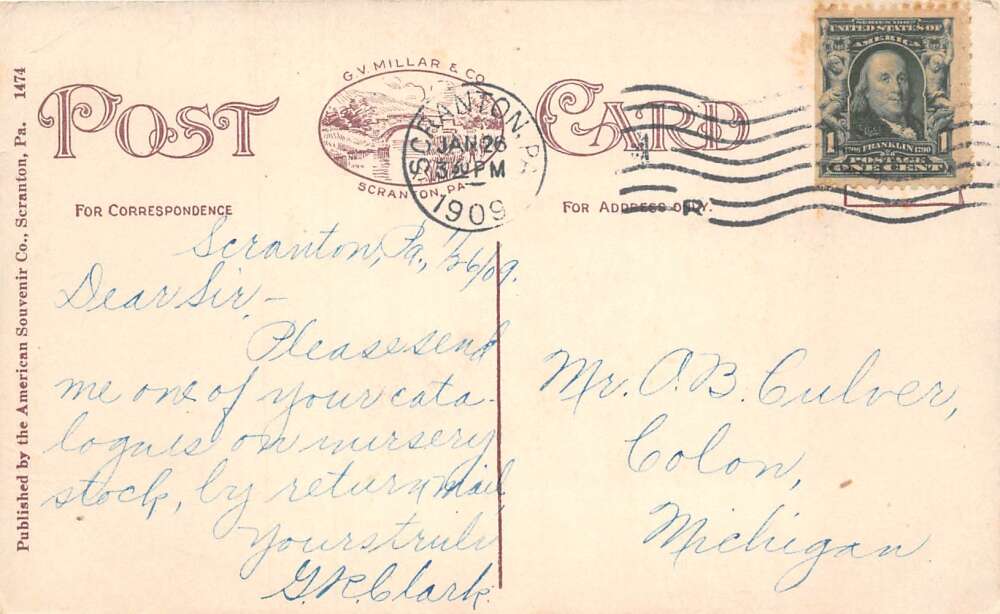 POST CARD
G.V. MILLAR & CO.
SCRANTON, PA.
SCRANTON, PA.
JAN 26
3 30 PM
1909
SERIES 1902
UNITED STATES OF
AMERICA
1706 FRANKLIN 1790
POSTAGE
1 ONE CENT 1
FOR CORRESPONDENCE
FOR ADDRESS ONLY.
Published by the American Souvenir Co., Scranton, Pa. 1474
Scranton, Pa., 1/26/09.
Dear Sir –
Please send
me one of your cata-
logues on nursery
stock, by return mail,
Yours truly
G.R. Clark.
Mr. O.B. Culver,
Colon,
Michigan